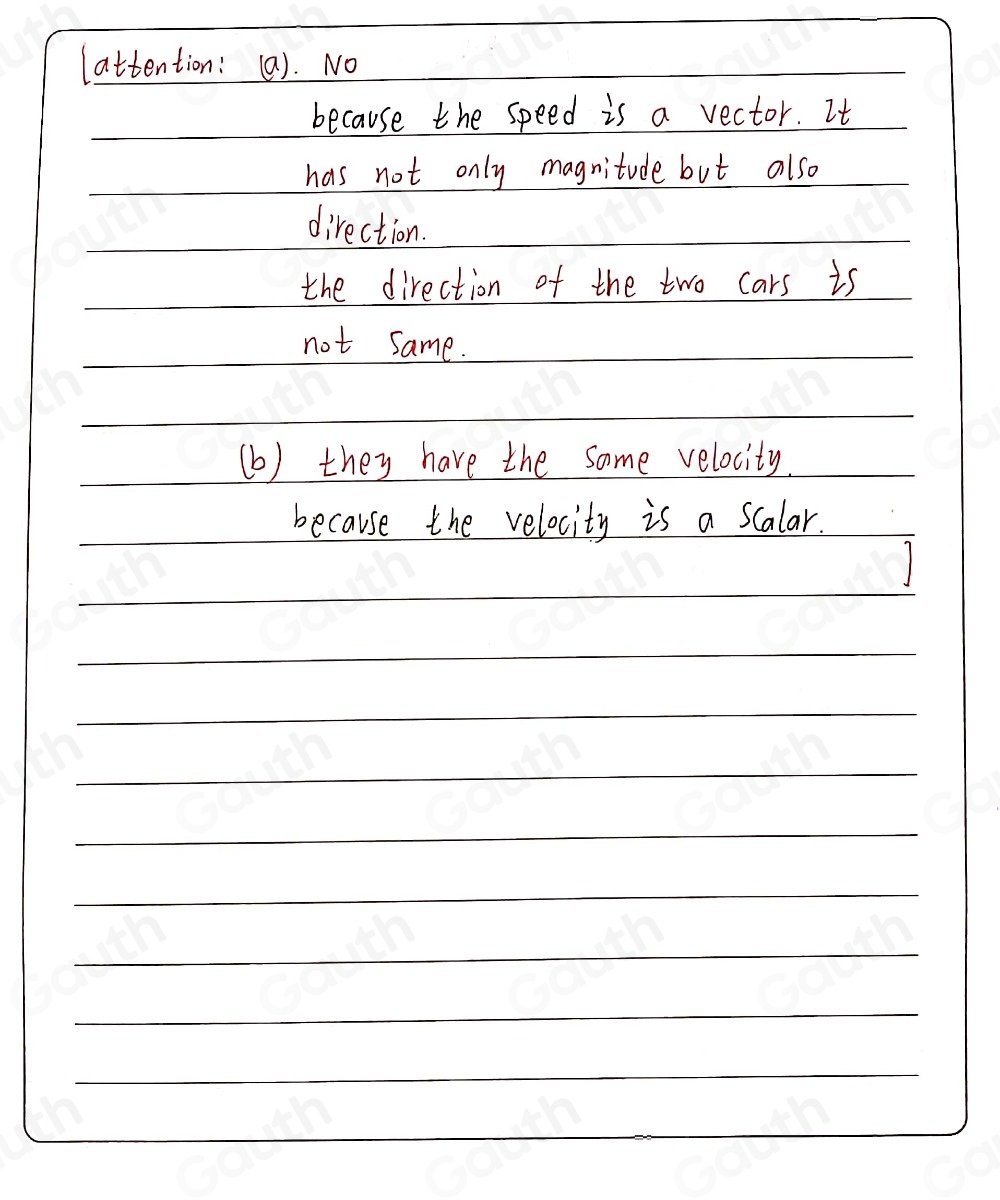 [attention: (a). No
because the speed is a vector. It
has not only magnitude but also
direction.
the direction of the two cars is
not same.
(b) they have the same velocity.
because the velocity is a scalar.
]